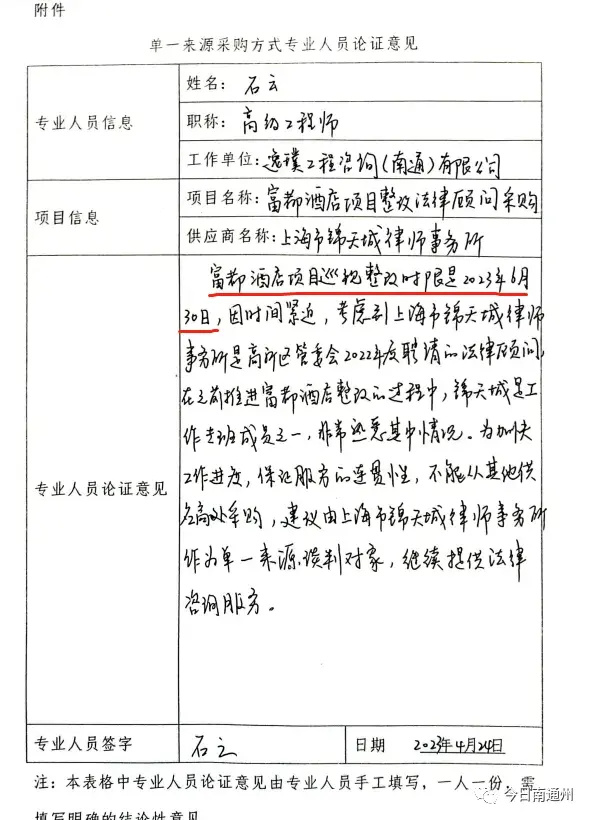 附件
单一来源采购方式专业人员论证意见
专业人员信息
姓名：石云
职称：高级工程师
工作单位：逸璞工程咨询(南通)有限公司
项目信息
项目名称：富都酒店项目整改法律顾问采购
供应商名称：上海市锦天城律师事务所
专业人员论证意见
富都酒店项目巡视整改时限是2023年6月
30日，因时间紧迫，考虑到上海市锦天城律师
事务所是高新区管委会2022年度聘请的法律顾问，
在之前推进富都酒店整改的过程中，锦天城是工
作专班成员之一，非常熟悉其中情况。为加快
工作进度，保证服务的连贯性，不能从其他供
应商处采购，建议由上海市锦天城律师事务所
作为单一来源谈判对象，继续提供法律
咨询服务。
专业人员签字
石云
日期
2023年4月24日
注：本表格中专业人员论证意见由专业人员手工填写，一人一份，需
填写明确的结论性意见
今日南通州